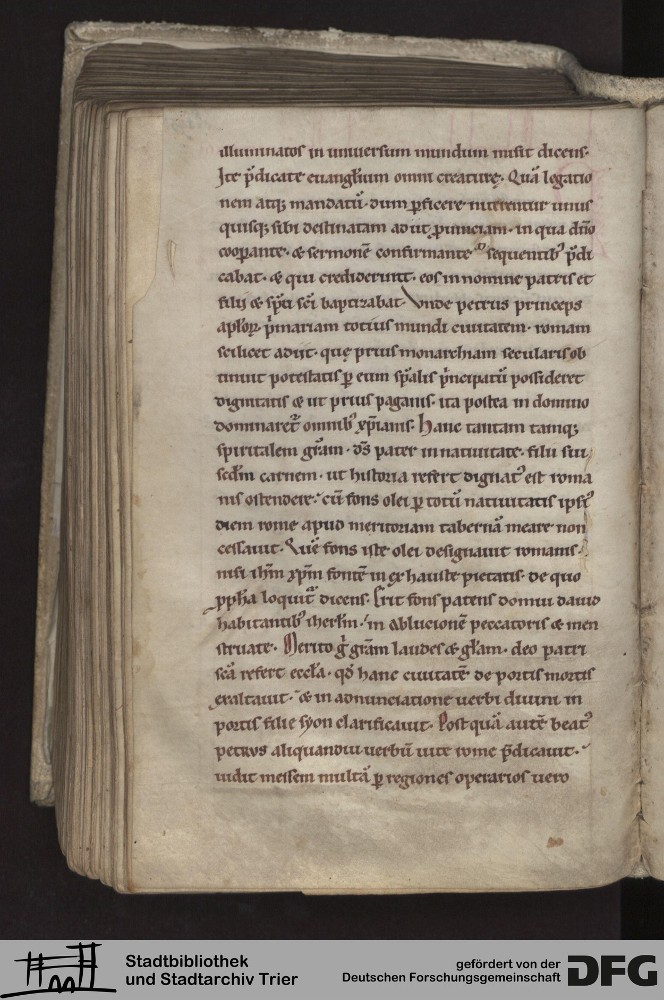 illuminatos in uniuersum mundum misit dicens·
Ite p̄dicate euanglium omni creaturę· Quā legatio
nem atq; mandatū· dum ꝑficere niterentur unus
quisq; sibi destinatam adiit ꝓuinciam· in qua dn̄o
cooꝑante· & sermonē confirmante sequentib; p̄di
cabat· & qui crediderunt· eos in nomine patris et
filii & sp̄c sc̄i baptizabat· Vnde petrus princeps
apl̄oꝝ p̄mariam totius mundi ciuitatem· romam
scilicet adiit· quę prius monarchiam secularis ob
tinuit potestatis ꝑ eum sp̄alis p̄ncipatū possideret
dignitatis & ut prius paganis· ita postea in domino
dominaret̄ omnib; xp̄ianis· Hanc tantam tamq;
spiritalem gr̄am· ds̄ pater in natiuitate· filii sui
scd̄m carnem· ut historia refert dignat᷒ est roma
nis ostendere· cū fons olei ꝑ totū natiuitatis ipsi᷒
diem rome apud meritoriam tabernā meare non
cessauit· Quē fons iste olei designauit romanis·
nisi ih̄m xp̄m fontē inexhauste pietatis· de quo
ꝓph̄a loquit̄ dicens· Erit fons patens domui dauid
habitantib; iherl̄m· in ablucionē peccatoris & men
struate· Merito g̊ gr̄am laudes & gl̄am· deo patri
sc̄a refert eccl̄a· qd̄ hanc ciuitatē de portis mortis
exaltauit· & in adnunciatione uerbi diuini in
portis filie syon clarificauit· Post quā autē beat᷒
petrus aliquandiu uerbū uite rome p̄dicauit·
uidit messem multā ꝑ regiones operarios uero
Stadtbibliothek
und Stadtarchiv Trier
gefördert von der
Deutschen Forschungsgemeinschaft
DFG